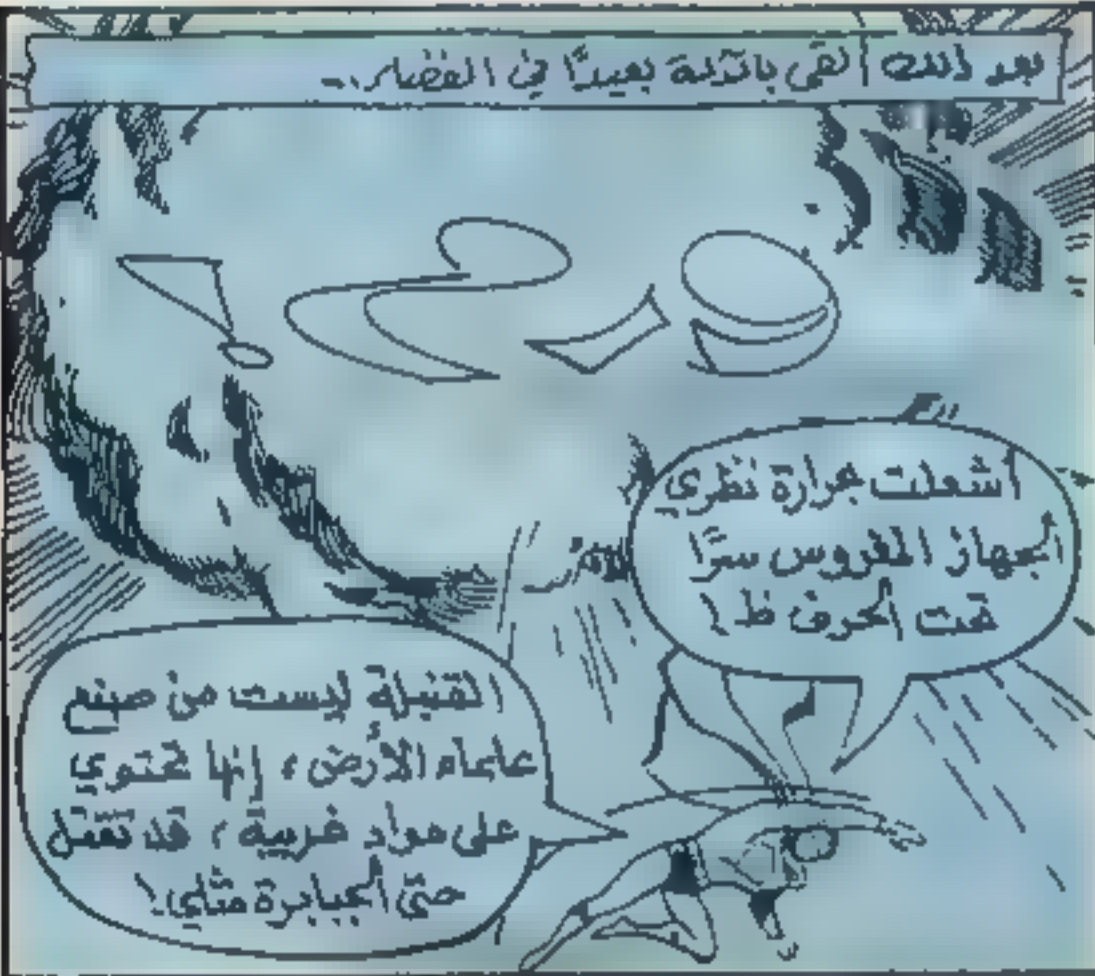 بعد ذلك ألقى باتزلة بعيدًا في الفضاء..
أشعلت بحرارة نظري
الجهاز المغروس سرًّا
تحت الحرف ظ!
القنبلة ليست من صنع
علماء الأرض، إنها تحتوي
على مواد غريبة، قد تقتل
حتى الجبابرة مثلي!